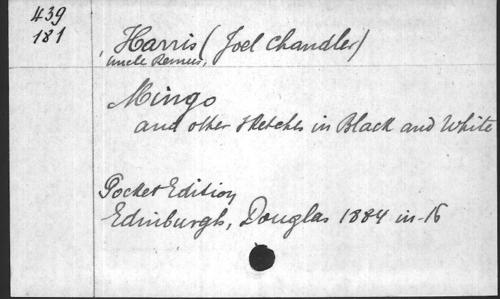 439
181
Harris (Joel Chandler)
Uncle Remus,
Mingo
and other Sketches in Black and White
Pocket Edition
Edinburgh, Douglas 1884 in-16